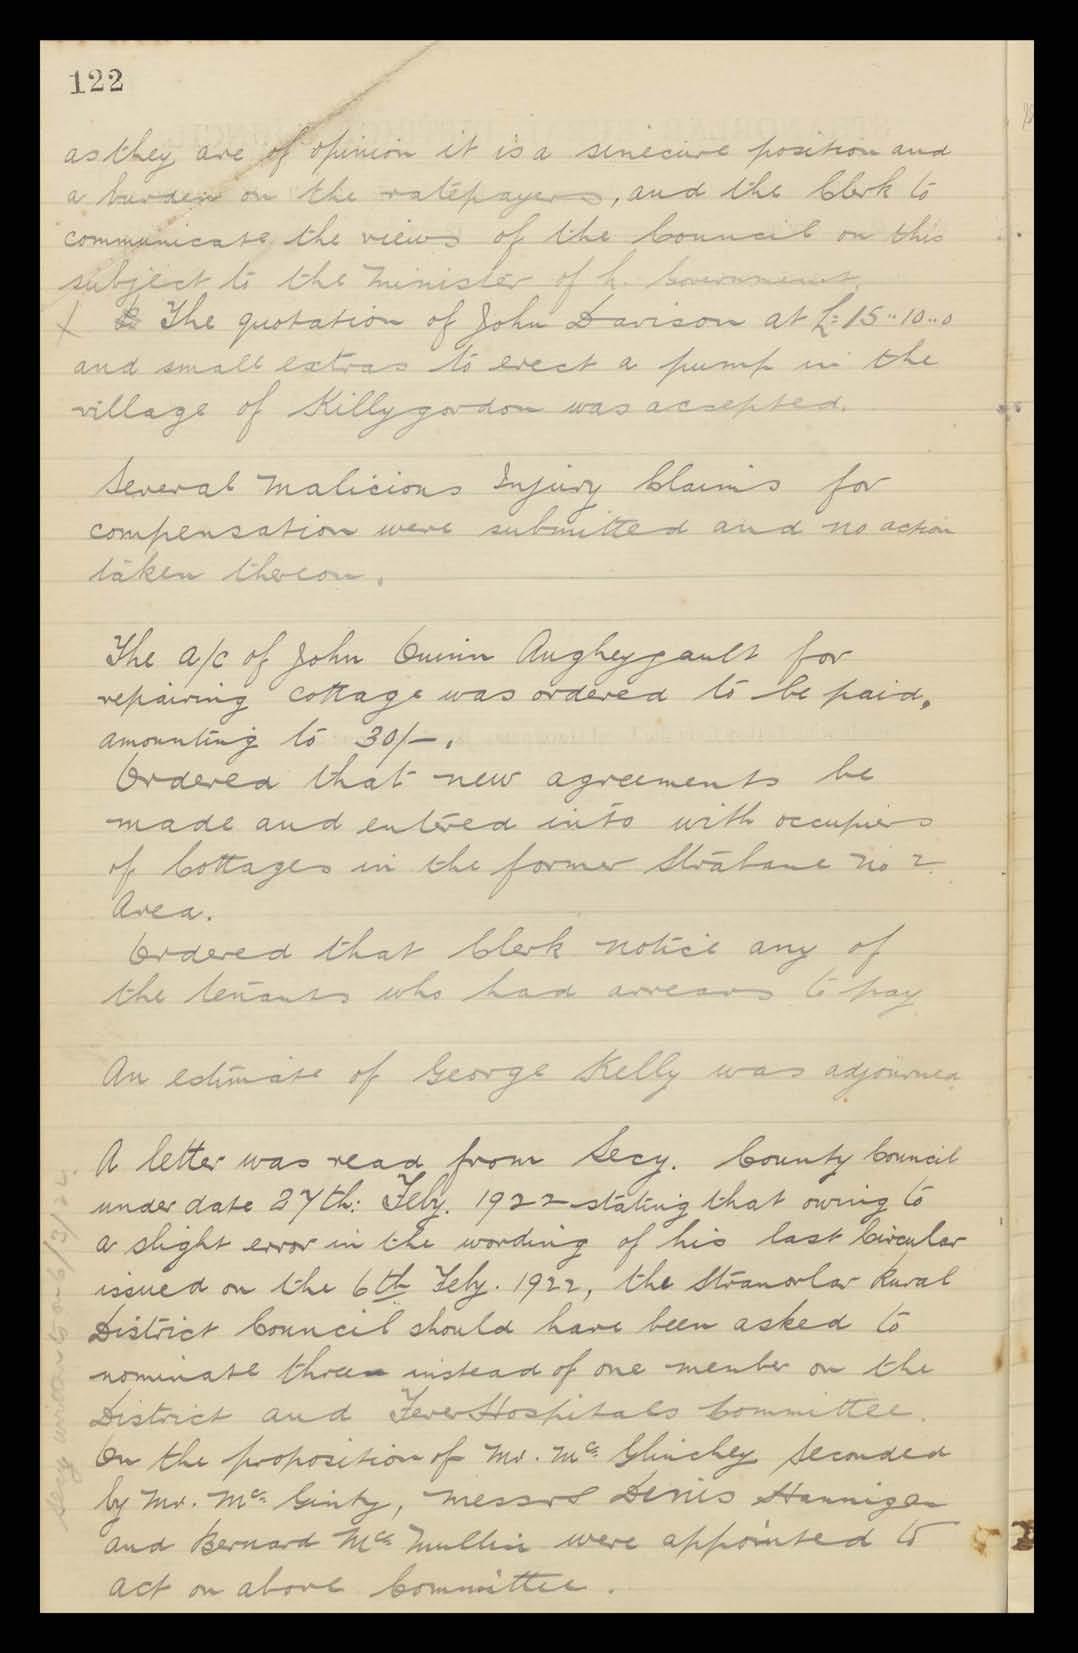 122
as they are of opinion it is a sinecure position and
a burden on the ratepayers, and the Clerk to
communicate the views of the Council on this
subject to the Minister of L. Government.
X The quotation of John Davison at £15"10"0
and small extras to erect a pump in the
village of Killygordon was accepted.
Several Malicious Injury Claims for
compensation were submitted and no action
taken thereon.
The a/c of John Quinn Augheygault for
repairing cottage was ordered to be paid,
amounting to 30/-.
Ordered that new agreements be
made and entered into with occupiers
of Cottages in the former Strabane No 2
Area.
Ordered that Clerk notice any of
the tenants who had arrears to pay
An estimate of George Kelly was adjourned
A letter was read from Secy. County Council
under date 27th: Feby. 1922 stating that owing to
a slight error in the wording of his last Circular
issued on the 6th Feby. 1922, the Stranorlar Rural
District Council should have been asked to
nominate three instead of one member on the
District and Fever Hospitals Committee.
On the proposition of Mr. Mc Glinchey seconded
by Mr. Mc Ginty, Messrs Denis Hannigan
and Bernard Mc Mullin were appointed to
act on above Committee.
Secy written to on 6/3/22.